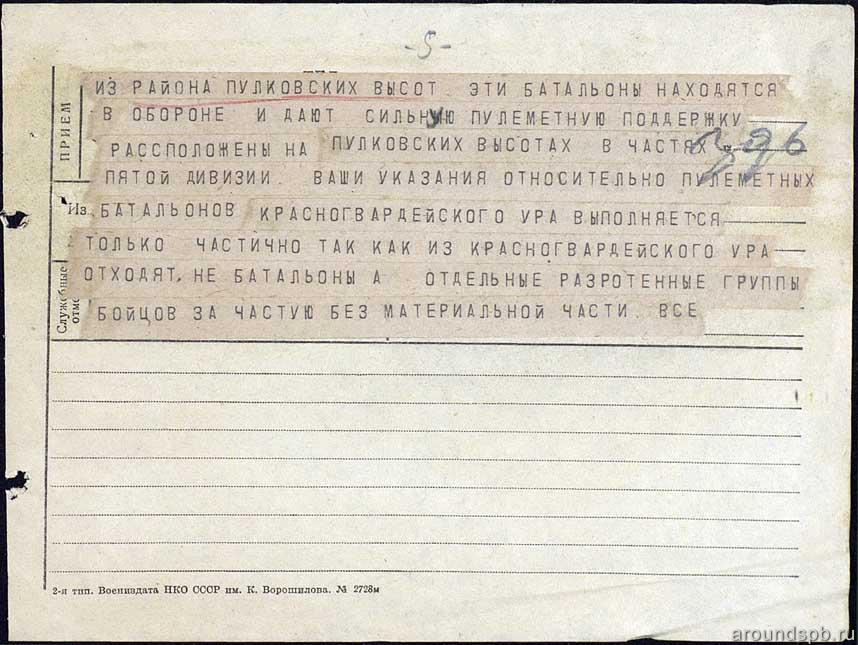 -5-
ИЗ РАЙОНА ПУЛКОВСКИХ ВЫСОТ. ЭТИ БАТАЛЬОНЫ НАХОДЯТСЯ
В ОБОРОНЕ И ДАЮТ СИЛЬНУЮ ПУЛЕМЕТНУЮ ПОДДЕРЖКУ
РАССПОЛОЖЕНЫ НА ПУЛКОВСКИХ ВЫСОТАХ В ЧАСТЯХ
ПЯТОЙ ДИВИЗИИ. ВАШИ УКАЗАНИЯ ОТНОСИТЕЛЬНО ПУЛЕМЕТНЫХ
БАТАЛЬОНОВ КРАСНОГВАРДЕЙСКОГО УРА ВЫПОЛНЯЕТСЯ
ТОЛЬКО ЧАСТИЧНО ТАК КАК ИЗ КРАСНОГВАРДЕЙСКОГО УРА
ОТХОДЯТ, НЕ БАТАЛЬОНЫ А ОТДЕЛЬНЫЕ РАЗРОТЕННЫЕ ГРУППЫ
БОЙЦОВ ЗА ЧАСТУЮ БЕЗ МАТЕРИАЛЬНОЙ ЧАСТИ. ВСЕ
ПРИЕМ
Из
Служебные
отме
2-я тип. Воениздата НКО СССР им. К. Ворошилова. № 2728м
aroundspb.ru